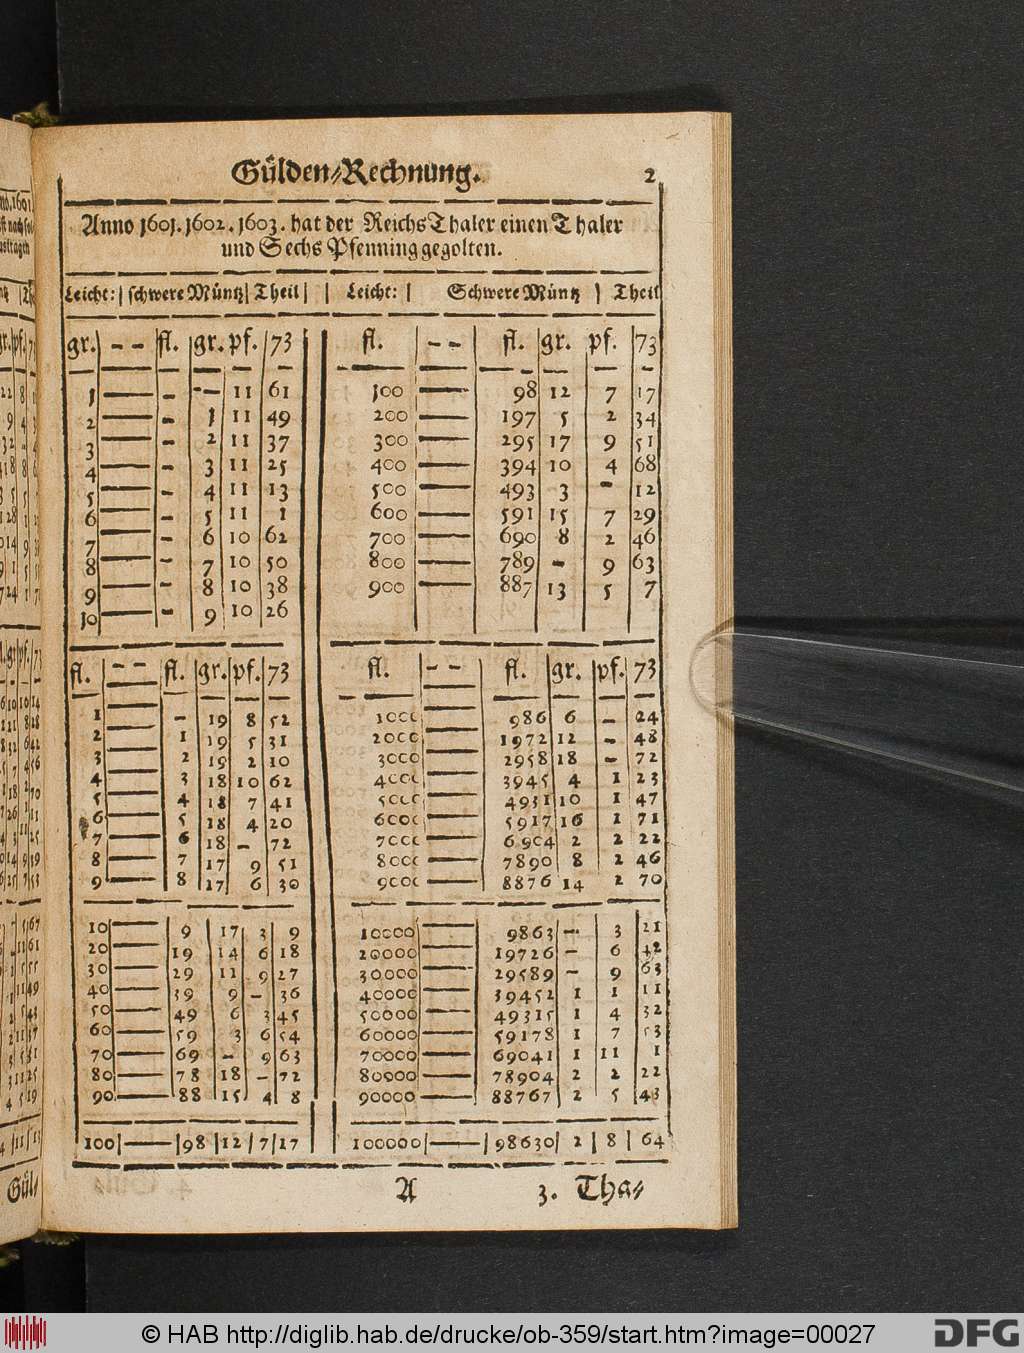 Gülden-Rechnung. 2
Anno 1601. 1602. 1603. hat der ReichsThaler einen Thaler
und Sechs Pfenning gegolten.
Leicht: | schwere Müntz | Theil | | Leicht: | Schwere Müntz | Theil
gr. — — fl. gr. pf. 73
1 — - -- 11 61
2 — - 1 11 49
3 — - 2 11 37
4 — - 3 11 25
5 — - 4 11 13
6 — - 5 11 1
7 — - 6 10 62
8 — - 7 10 50
9 — - 8 10 38
10 — - 9 10 26
fl. — — fl. gr. pf. 73
1 — - 19 8 52
2 — 1 19 5 31
3 — 2 19 2 10
4 — 3 18 10 62
5 — 4 18 7 41
6 — 5 18 4 20
7 — 6 18 - 72
8 — 7 17 9 51
9 — 8 17 6 30
10 — 9 17 3 9
20 — 19 14 6 18
30 — 29 11 9 27
40 — 39 9 - 36
50 — 49 6 3 45
60 — 59 3 6 54
70 — 69 - 9 63
80 — 78 18 - 72
90 — 88 15 4 8
100 | — | 98 | 12 | 7 | 17
fl. — — fl. gr. pf. 73
100 — 98 12 7 17
200 — 197 5 2 34
300 — 295 17 9 51
400 — 394 10 4 68
500 — 493 3 - 12
600 — 591 15 7 29
700 — 690 8 2 46
800 — 789 - 9 63
900 — 887 13 5 7
fl. — — fl. gr. pf. 73
1000 — 986 6 - 24
2000 — 1972 12 - 48
3000 — 2958 18 - 72
4000 — 3945 4 1 23
5000 — 4931 10 1 47
6000 — 5917 16 1 71
7000 — 6904 2 2 22
8000 — 7890 8 2 46
9000 — 8876 14 2 70
10000 — 9863 - 3 21
20000 — 19726 - 6 42
30000 — 29589 - 9 63
40000 — 39452 1 1 11
50000 — 49315 1 4 32
60000 — 59178 1 7 53
70000 — 69041 1 11 1
80000 — 78904 2 2 22
90000 — 88767 2 5 43
100000 | — | 98630 | 2 | 8 | 64
A 3. Tha-
Gül-
© HAB http://diglib.hab.de/drucke/ob-359/start.htm?image=00027
DFG